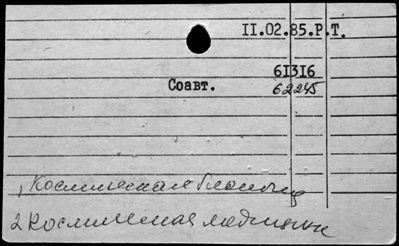 II.02.85.Р.Т.
6I3I6
Соавт. 62245
1, Космическая биология
2 Космическая медицина